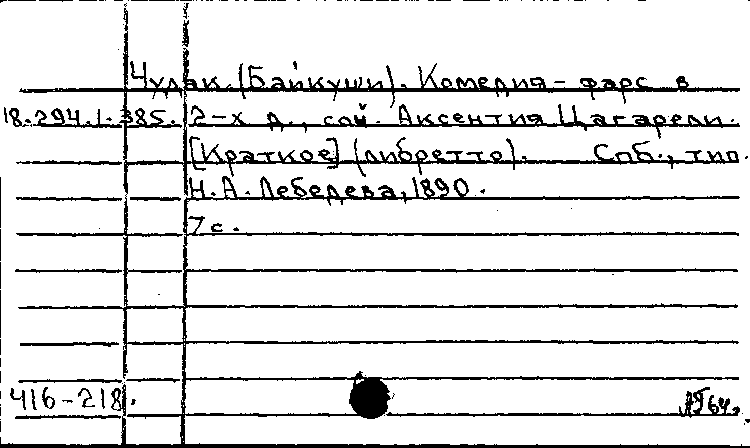 Чудак. (Байкуши). Комедия-фарс в
18.294.1.385. 2-х д., соч. Аксентия Цагарели.
[Краткое] (либретто). Спб., тип.
Н.А. Лебедева, 1890.
7 с.
416-218.
64г.